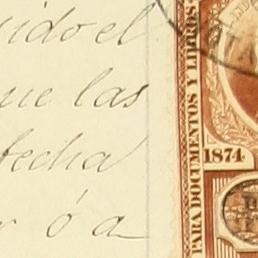 el
que las
fecha
ó a
PARA DOCUMENTOS Y LIBROS
1874